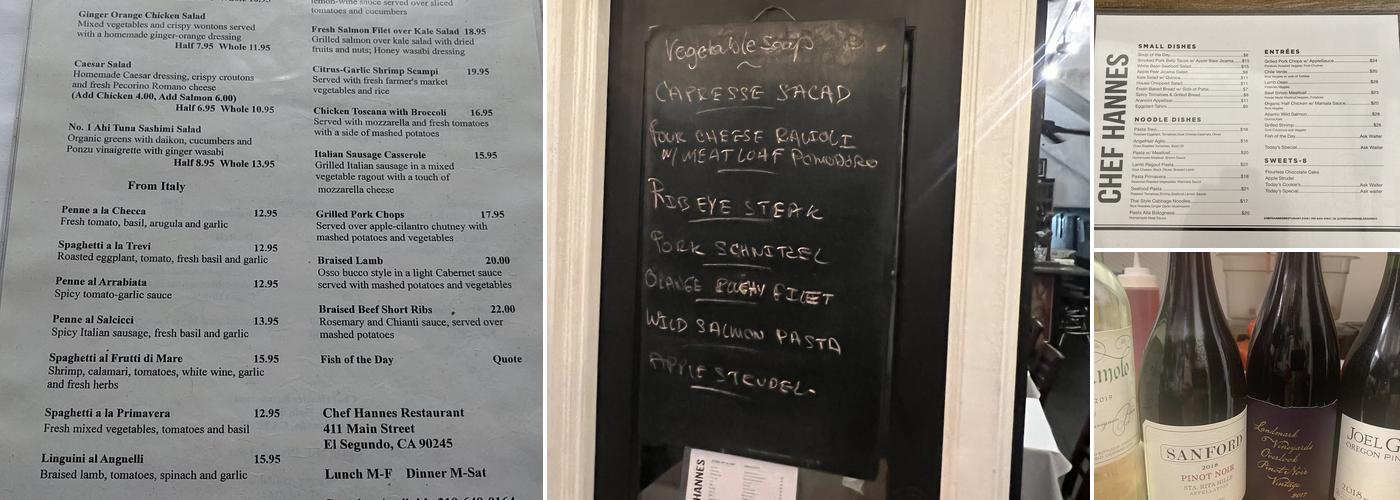 Ginger Orange Chicken Salad
Mixed vegetables and crispy wontons served
with a homemade ginger-orange dressing
Half 7.95 Whole 11.95
Caesar Salad
Homemade Caesar dressing, crispy croutons
and fresh Pecorino Romano cheese
(Add Chicken 4.00, Add Salmon 6.00)
Half 6.95 Whole 10.95
No. 1 Ahi Tuna Sashimi Salad
Organic greens with daikon, cucumbers and
Ponzu vinaigrette with ginger wasabi
Half 8.95 Whole 13.95
From Italy
Penne a la Checca 12.95
Fresh tomato, basil, arugula and garlic
Spaghetti a la Trevi 12.95
Roasted eggplant, tomato, fresh basil and garlic
Penne al Arrabiata 12.95
Spicy tomato-garlic sauce
Penne al Salcicci 13.95
Spicy Italian sausage, fresh basil and garlic
Spaghetti al Frutti di Mare 15.95
Shrimp, calamari, tomatoes, white wine, garlic
and fresh herbs
Spaghetti a la Primavera 12.95
Fresh mixed vegetables, tomatoes and basil
Linguini al Augnelli 15.95
Braised lamb, tomatoes, spinach and garlic
lemon-wine sauce served over sliced
tomatoes and cucumbers
Fresh Salmon Filet over Kale Salad 18.95
Grilled salmon over kale salad with dried
fruits and nuts; Honey wasabi dressing
Citrus-Garlic Shrimp Scampi 19.95
Served with fresh farmer's market
vegetables and rice
Chicken Toscana with Broccoli 16.95
Served with mozzarella and fresh tomatoes
with a side of mashed potatoes
Italian Sausage Casserole 15.95
Grilled Italian sausage in a mixed
vegetable ragout with a touch of
mozzarella cheese
Grilled Pork Chops 17.95
Served over apple-cilantro chutney with
mashed potatoes and vegetables
Braised Lamb 20.00
Osso bucco style in a light Cabernet sauce
served with mashed potatoes and vegetables
Braised Beef Short Ribs 22.00
Rosemary and Chianti sauce, served over
mashed potatoes
Fish of the Day Quote
Chef Hannes Restaurant
411 Main Street
El Segundo, CA 90245
Lunch M-F Dinner M-Sat
Vegetable Soup
CAPRESSE SALAD
FOUR CHEESE RAVIOLI
W/MEATLOAF POMODORO
RIB EYE STEAK
PORK SCHNITZEL
ORANGE ROUGHY FILET
WILD SALMON PASTA
APPLE STRUDEL
HANNES
CHEF HANNES
SMALL DISHES
Soup of the Day $8
Smoked Pork Belly Tacos w/ Apple Slaw Jicama $15
White Bean Seafood Salad $15
Apple Pear Jicama Salad
Kale Salad w/ Quinoa $11
House Chopped Salad $11
Fresh Baked Bread w/ Side of Pesto
Spicy Tomatoes & Grilled Bread
Arancini Appetiser $11
Eggplant Tahini $9
NOODLE DISHES
Pasta Trevi $18
AngelHair Aglio
Pasta w/ Meatloaf $20
Lamb Ragout Pasta
Pasta Primavera $18
Seafood Pasta $21
Thai Style Cabbage Noodles $17
Pasta Alla Bolognese $20
ENTRÉES
Grilled Pork Chops w/ AppleSauce $24
Chile Verde $20
Lamb Osso $28
Beef Short Meatloaf
Organic Half Chicken w/ Marsala Sauce
Atlantic Wild Salmon $28
Grilled Shrimp $28
Fish of the Day Ask Waiter
Today's Special Ask Waiter
SWEETS-8
Flourless Chocolate Cake
Apple Strudel
Today's Cookie's Ask Waiter
Today's Special Ask Waiter
2019
SANFORD
2018
PINOT NOIR
STA. RITA HILLS
APPELLATION
Landmark
Vineyards
Overlook
Pinot Noir
Vintage
2017
JOEL G
OREGON PIN
2018